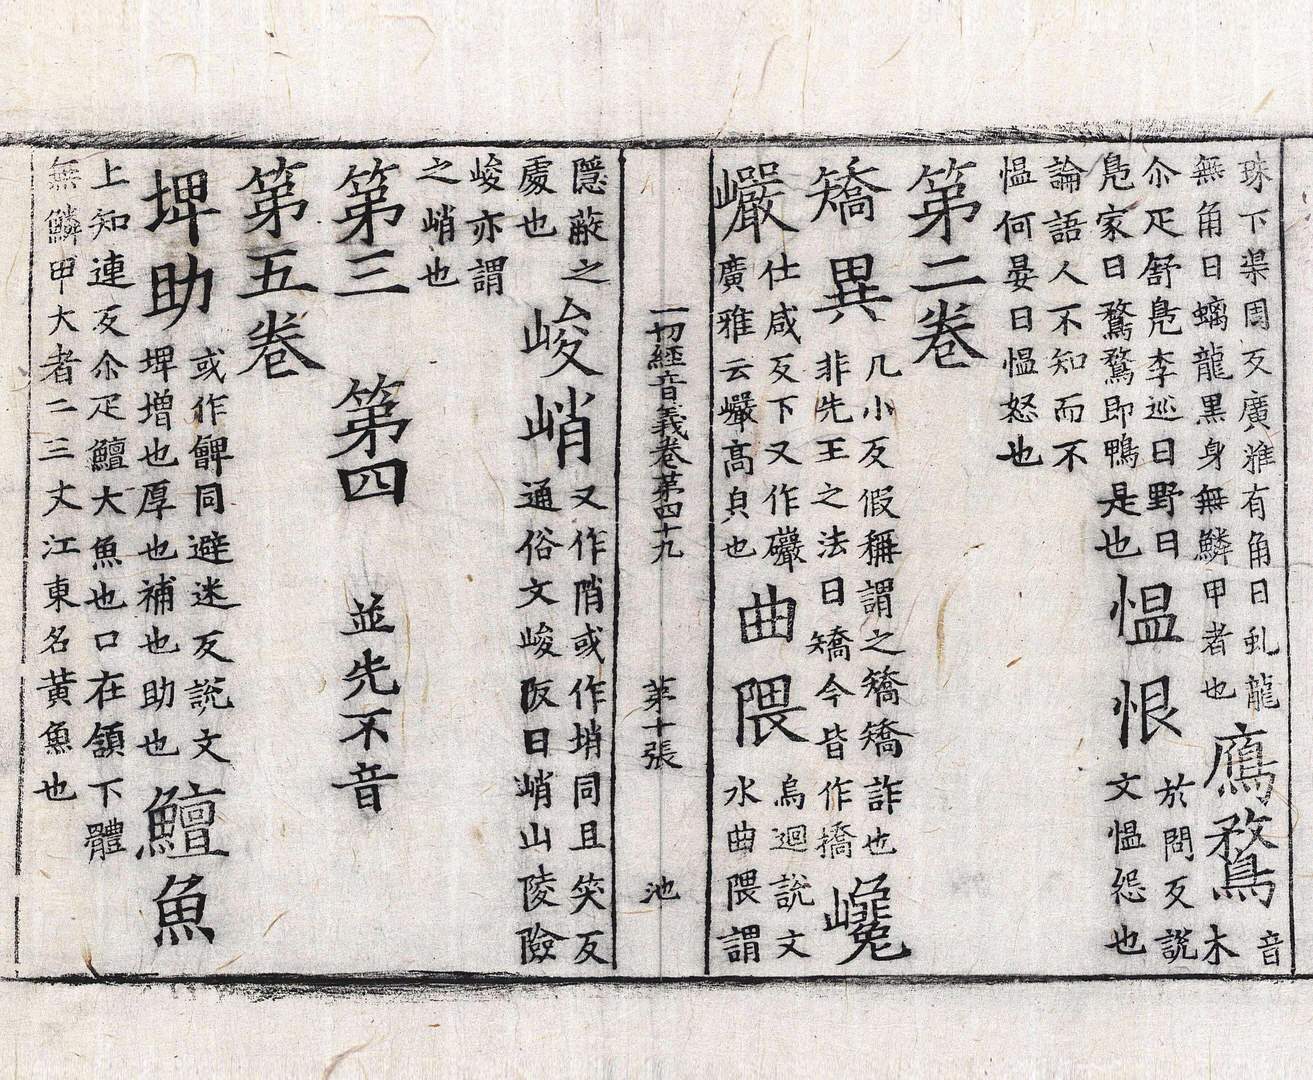 珠下渠周反廣雅有角曰虬龍
無角曰螭龍黑身無鱗甲者也
鳸鶩
音
木
尒疋舒鳧李巡曰野曰
鳧家曰鶩鶩即鴨是也
愠恨
於問反說
文愠怨也
論語人不知而不
愠何晏曰愠怒也
第二卷
矯異
几小反假稱謂之矯矯詐也
非先王之法曰矯今皆作撟
巉巗
仕咸反下又作礹
廣雅云巗高皃也
曲隈
烏迴說文
水曲隈謂
一切經音義卷第四十九 第十張 池
隱蔽之
處也
峻峭
又作陗或作埍同且笑反
通俗文峻阪曰峭山陵險
峻亦謂
之峭也
第三 第四 並先不音
第五卷
埤助
或作朇同避迷反說文
埤増也厚也補也助也
鱣魚
上知連反尒疋鱣大魚也口在頷下體
無鱗甲大者二三丈江東名黃魚也